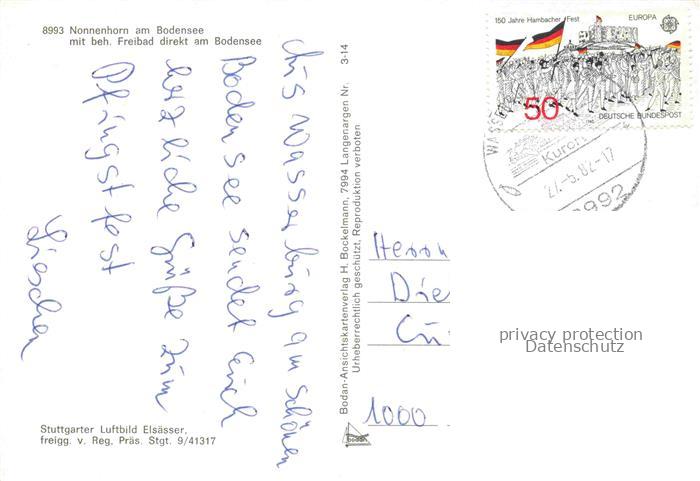 8993 Nonnenhorn am Bodensee
mit beh. Freibad direkt am Bodensee
Aus Wasserburg am schönen
Bodensee sendet Euch
herzliche Grüße zum
Pfingstfest
Lieschen
Stuttgarter Luftbild Elsässer,
freigg. v. Reg. Präs. Stgt. 9/41317
3-14
Bodan-Ansichtskartenverlag H. Bockelmann, 7994 Langenargen Nr.
Urheberrechtlich geschützt, Reproduktion verboten
bodan
150 Jahre Hambacher Fest
EUROPA
50
DEUTSCHE BUNDESPOST
WASSE
27.-5.82-17
8992
Herrn
Die
1000
privacy protection
Datenschutz